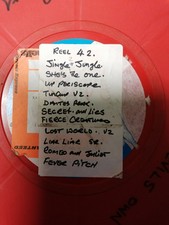 REEL 42.
Jingle-Jungle
SHE'S THE ONE.
UP PERISCOPE
TURN V2.
DANTES PEAK.
SECRETS AND LIES
FIERCE CREATURES
LOST WORLD. V2
LIAR LIAR SR.
ROMEO AND JULIET
FEVER PITCH